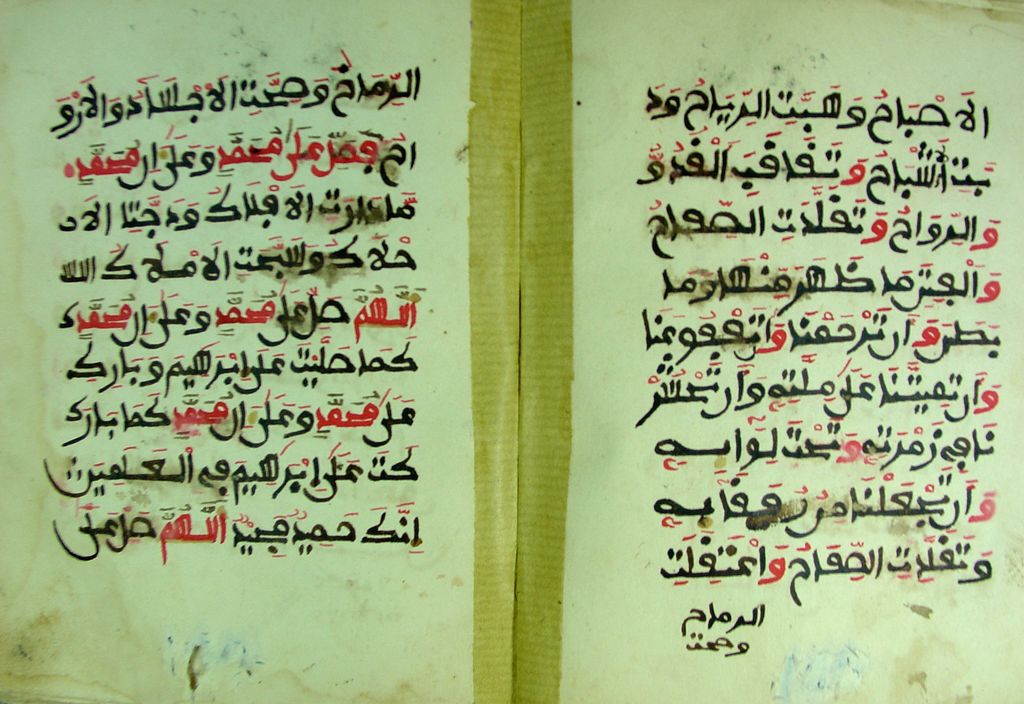 الاصباح وهبت الرياح ود
بت الاشباح وتعاقب الغدو و
والرواح وتقلدت الصفاح
والفتن ما ظهر منها وما
بطن وان ترحمنا وتعفو عنا
وان تميتنا على ملته وان تحشر
نا في زمرته وتحت لوايه
وان تجعلنا من رفقايه
وتقلدت الصفاح واعتقلت
الرماح
وصحت
الرماح وصحت الاجساد والارو
اح فصل على محمد وعلى ال محمد
ما دارت الافلاك ودجت الا
حلاك وسبحت الاملاك
اللهم صل على محمد وعلى ال محمد
كما صليت على ابرهيم وبارك
على محمد وعلى ال محمد كما بار
كت على ابرهيم في العلمين
انك حميد مجيد اللهم صل على